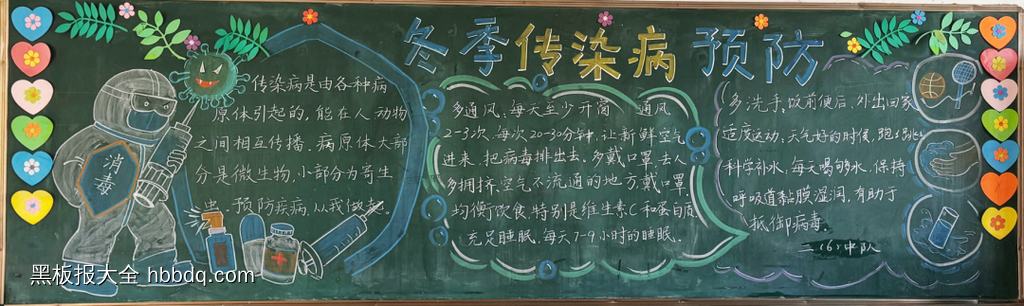 冬季传染病预防
传染病是由各种病
原体引起的,能在人动物
之间相互传播,病原体大部
分是微生物,小部分为寄生
虫,预防疾病,从我做起。
消毒
多通风,每天至少开窗 通风
2-3次,每次20-30分钟,让新鲜空气
进来,把病毒排出去。多戴口罩,去人
多拥挤,空气不流通的地方戴口罩
均衡饮食,特别是维生素C和蛋白质
充足睡眠,每天7-9小时的睡眠。
多洗手,饭前便后,外出回家
适度运动,天气好的时候,跑
科学补水,每天喝够水,保持
呼吸道黏膜湿润,有助于
抵御病毒。
(6)中队
黑板报大全 hbbdq.com